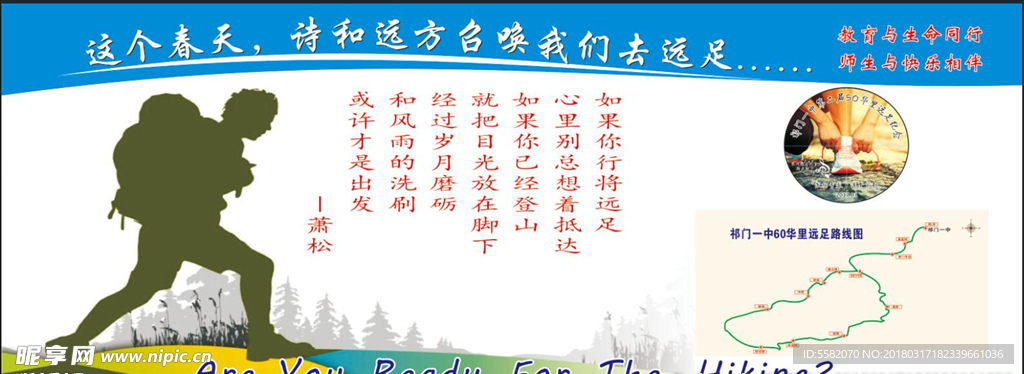 这个春天，诗和远方召唤我们去远足......
教育与生命同行
师生与快乐相伴
如果你行将远足
心里别总想着抵达
如果你已经登山
就把目光放在脚下
经过岁月磨砺
和风雨的洗刷
或许才是出发
—萧松
祁门一中60华里远足路线图
祁门一中
Are You Ready For The Hiking?
昵享网 www.nipic.cn
ID:5582070 NO:20180317182339661036